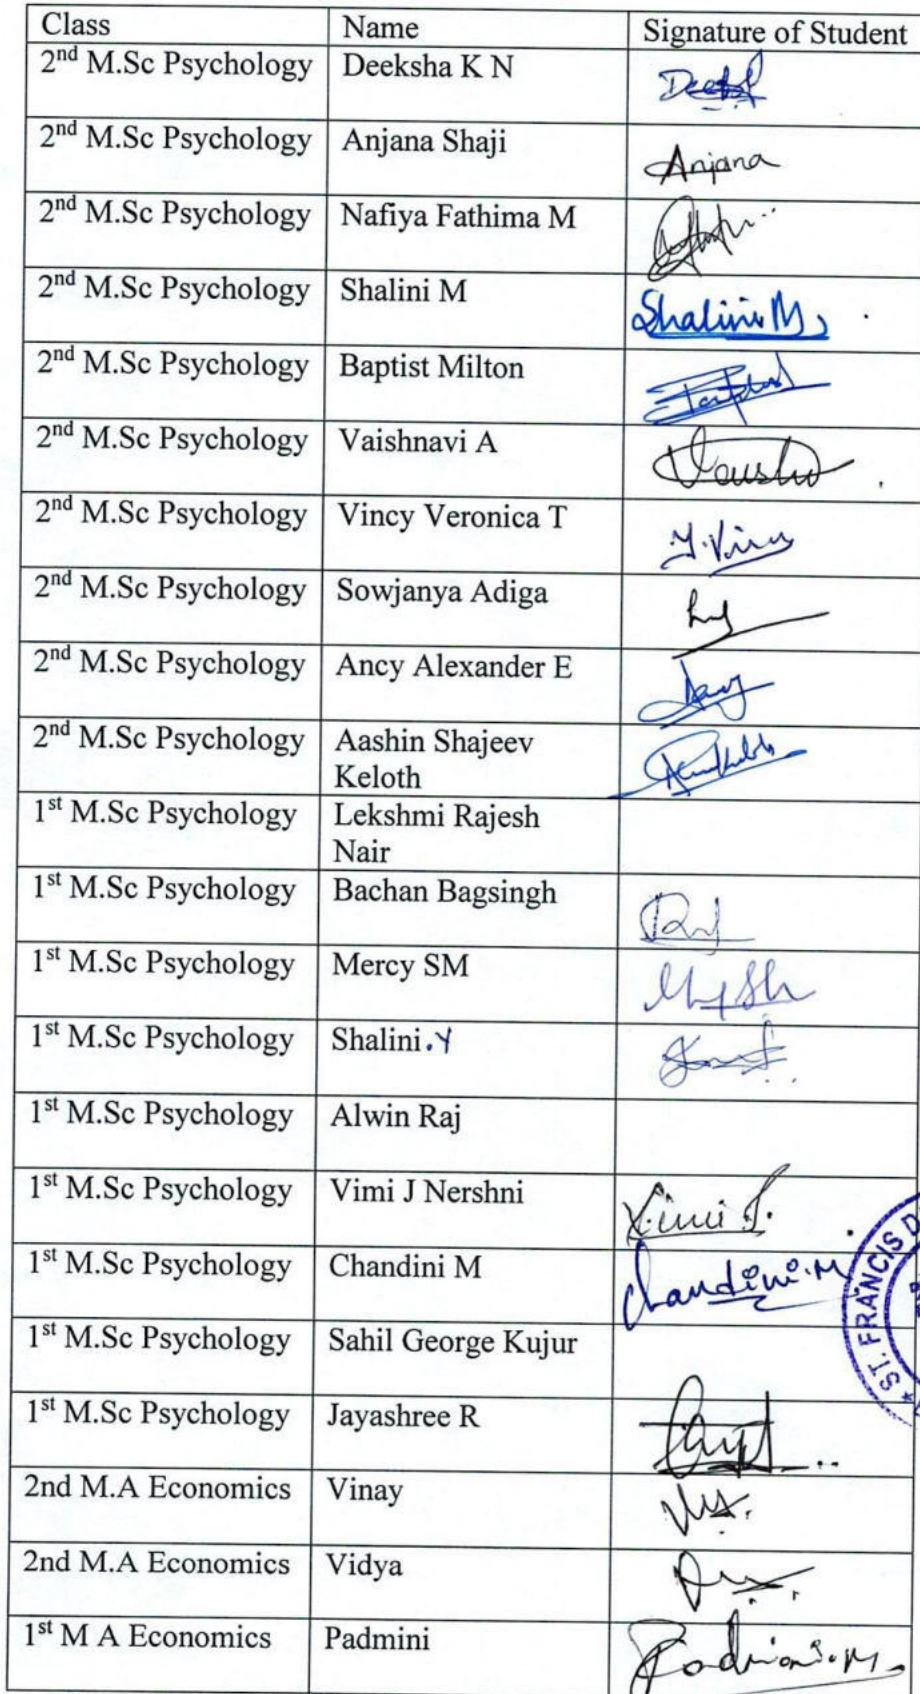 Class Name Signature of Student
2nd M.Sc Psychology Deeksha K N
2nd M.Sc Psychology Anjana Shaji Anjana
2nd M.Sc Psychology Nafiya Fathima M
2nd M.Sc Psychology Shalini M Shalini M
2nd M.Sc Psychology Baptist Milton
2nd M.Sc Psychology Vaishnavi A
2nd M.Sc Psychology Vincy Veronica T
2nd M.Sc Psychology Sowjanya Adiga
2nd M.Sc Psychology Ancy Alexander E
2nd M.Sc Psychology Aashin Shajeev
Keloth
1st M.Sc Psychology Lekshmi Rajesh
Nair
1st M.Sc Psychology Bachan Bagsingh
1st M.Sc Psychology Mercy SM
1st M.Sc Psychology Shalini.Y
1st M.Sc Psychology Alwin Raj
1st M.Sc Psychology Vimi J Nershni Vimi J.
1st M.Sc Psychology Chandini M Chandini.M
ST. FRANCIS D
1st M.Sc Psychology Sahil George Kujur
1st M.Sc Psychology Jayashree R
2nd M.A Economics Vinay
2nd M.A Economics Vidya
1st M A Economics Padmini Padmini.M.